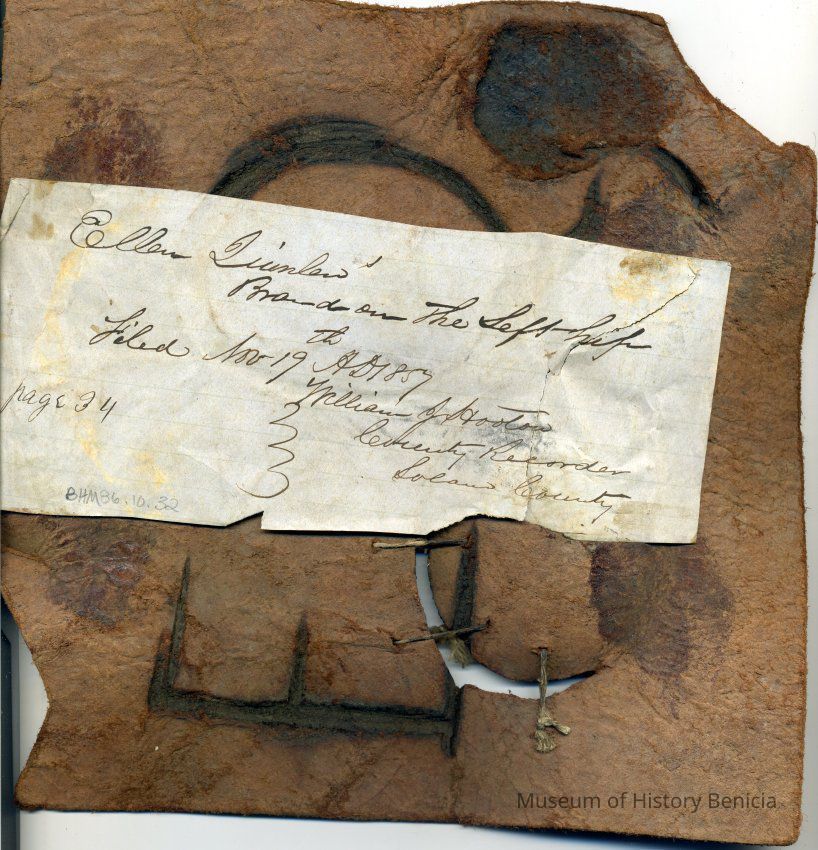 Ellen Quinlan's
Brand on The Left hip
Filed Nov 19th AD 1857
page 34
William J Hooton
County Recorder
Solano County
BHM86.10.32
Museum of History Benicia